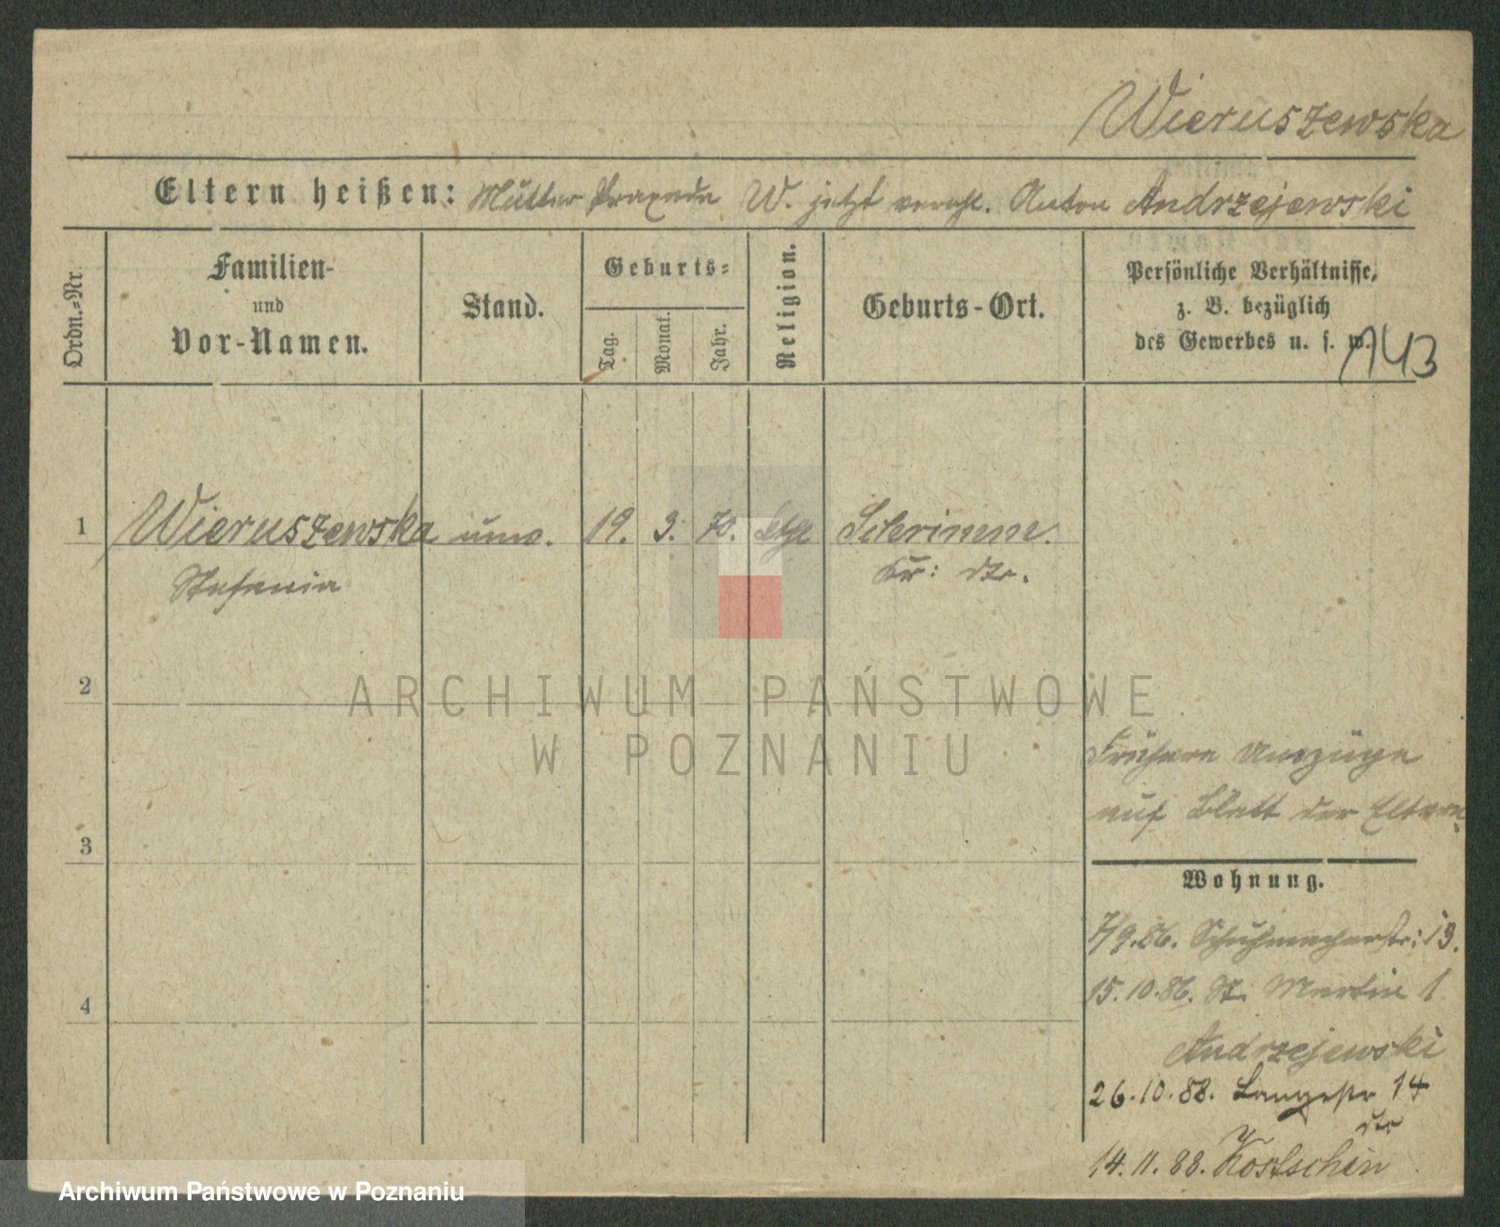 Wieruszewska
Eltern heißen: Mutter Praxeda W. jetzt verehl. Anton Andrzejewski
Ordn.-Nr.
Familien-
und
Vor-Namen.
Stand.
Geburts-
Tag.
Monat.
Jahr.
Religion.
Geburts-Ort.
Persönliche Verhältnisse,
z. B. bezüglich
des Gewerbes u. s. w.
143
1
Wieruszewska unv. 19. 3. 70. Schrimm.
Stefania Kr: dto.
2
ARCHIWUM PAŃSTWOWE
W POZNANIU
Frühere Umzüge
auf Blatt der Eltern
3
Wohnung.
7/9.86. Schuhmacherstr: 13.
15.10.86. St. Martin 1
4
Andrzejewski
26.10.88. Langestr 14
dto
14.11.88. Kostschin
Archiwum Państwowe w Poznaniu